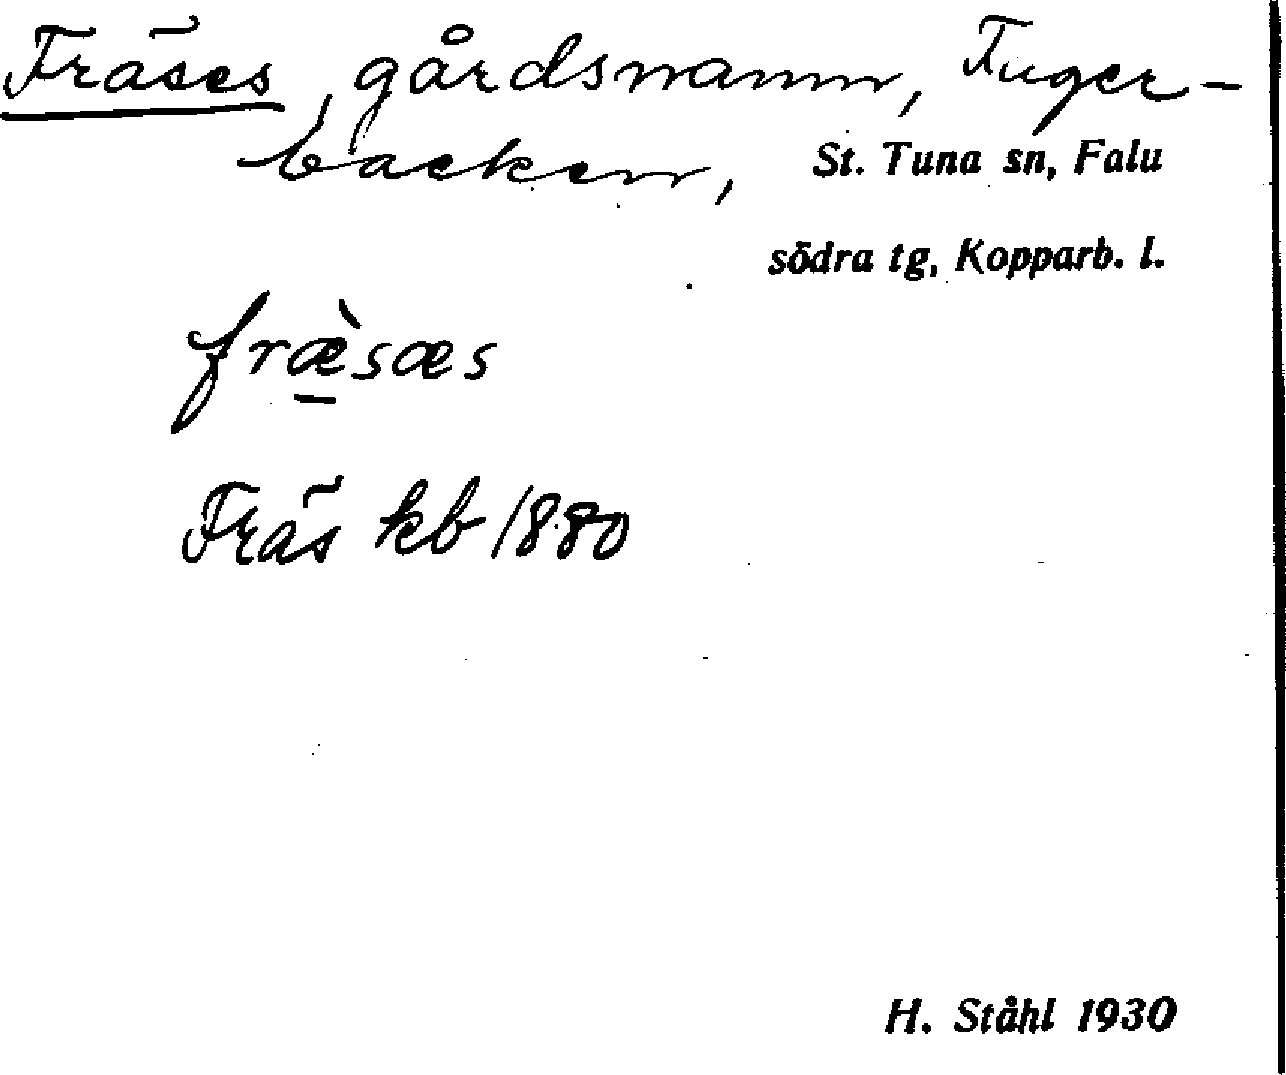 Fräses, gårdsnamn, Tuger-
backen, St. Tuna sn, Falu
södra tg, Kopparb. l.
fræ̀sæs
Fräs kb 1880
H. Ståhl 1930